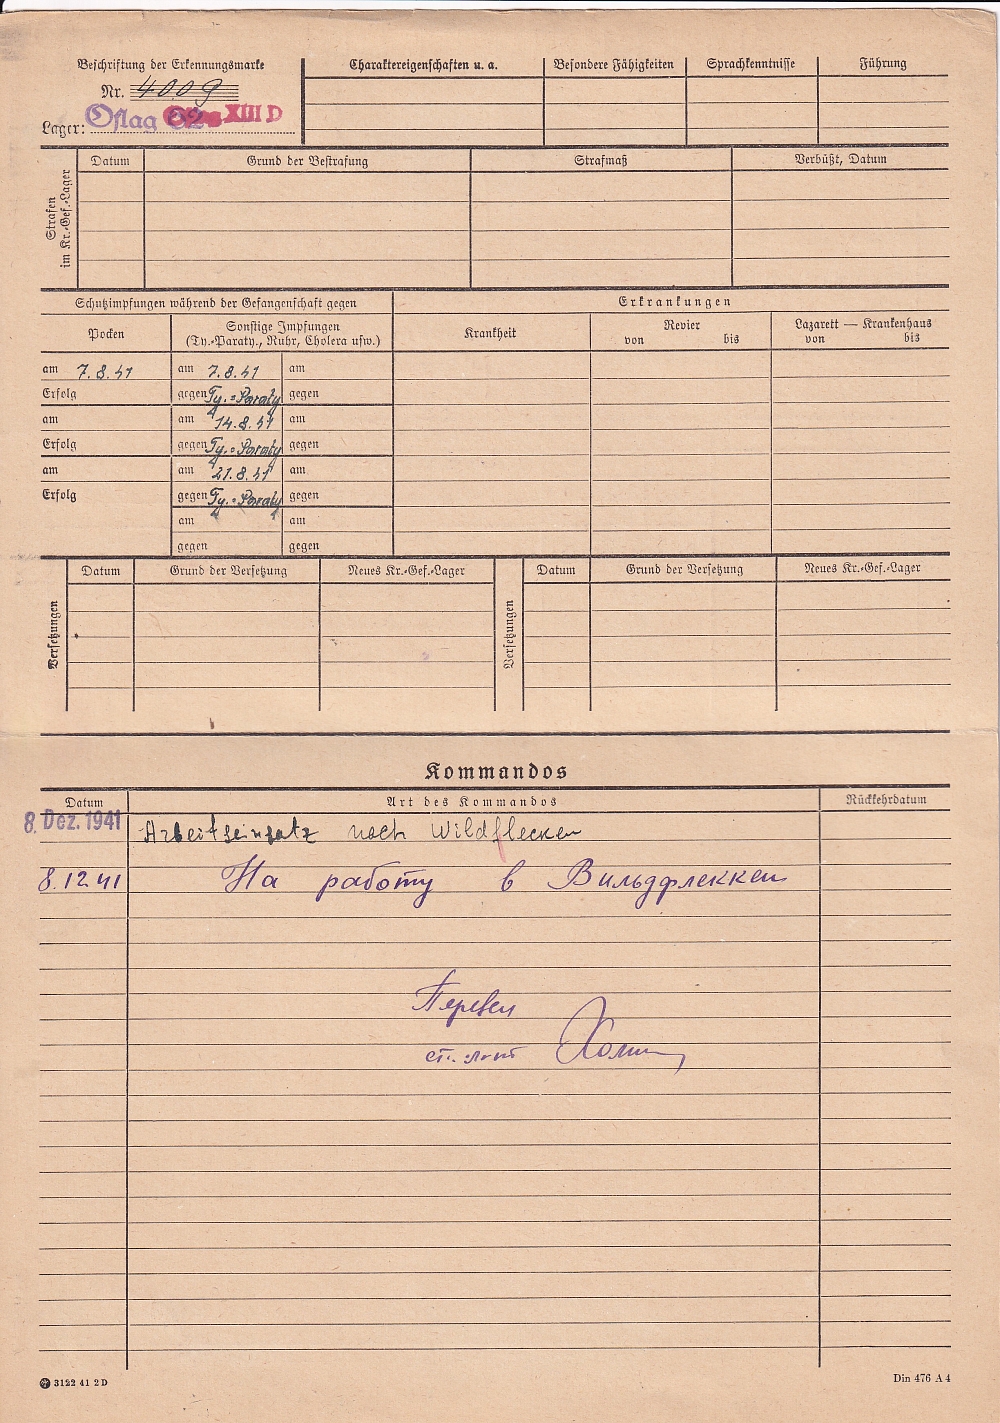 Beschriftung der Erkennungsmarke
Nr. 4009
Lager: Oflag 62 XIII D
Charaktereigenschaften u. a. Besondere Fähigkeiten Sprachkenntnisse Führung
Strafen im Kr.-Gef.-Lager
Datum Grund der Bestrafung Strafmaß Verbüßt, Datum
Schutzimpfungen während der Gefangenschaft gegen
Erkrankungen
Pocken
Sonstige Impfungen
(Ty.-Paraty., Ruhr, Cholera usw.)
Krankheit
Revier
von bis
Lazarett — Krankenhaus
von bis
am 7.8.41 am 7.8.41 am
Erfolg gegen Ty.-Paraty gegen
am am 14.8.41 am
Erfolg gegen Ty.-Paraty gegen
am am 21.8.41 am
Erfolg gegen Ty.-Paraty gegen
am am
gegen gegen
Versetzungen
Datum Grund der Versetzung Neues Kr.-Gef.-Lager
Versetzungen
Datum Grund der Versetzung Neues Kr.-Gef.-Lager
Kommandos
Datum Art des Kommandos Rückkehrdatum
8. Dez. 1941 Arbeitseinsatz nach Wildflecken
8.12 41 На работу в Вильдфлеккен
Перевел
ст. л-нт
3122 41 2 D
Din 476 A 4